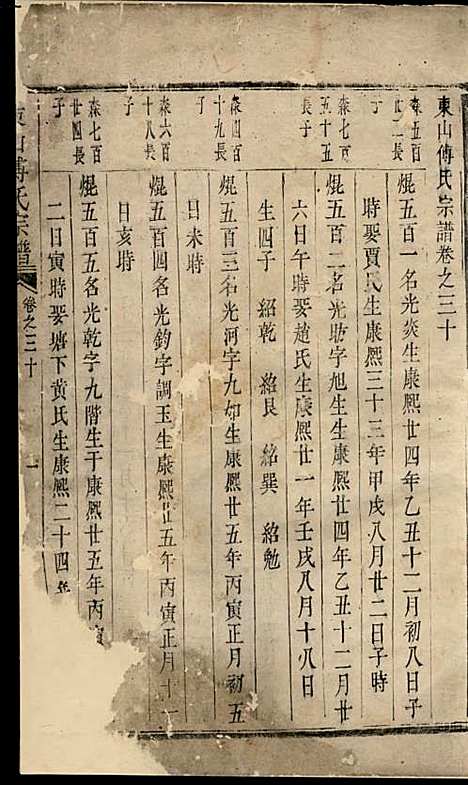 東山傅氏宗譜卷之三十
森五百廿二長子
焜五百一名光炎生康熙廿四年乙丑十二月初八日子
時娶賈氏生康熙三十三年甲戌八月廿二日子時
森七百五十五長子
焜五百二名光助字旭生生康熙廿四年乙丑十二月廿
六日午時娶趙氏生康熙廿一年壬戌八月十八日
生四子 紹乾 紹艮 紹巽 紹勉
森四百十九長子
焜五百三名光河字九如生康熙廿五年丙寅正月初五
日未時
森六百十八長子
焜五百四名光鈞字調玉生康熙廿五年丙寅正月十一
日亥時
森七百廿四長子
焜五百五名光乾字九階生于康熙廿五年丙寅
二日寅時娶塘下黄氏生康熙二十四年
東山傅氏宗譜 卷之三十 一